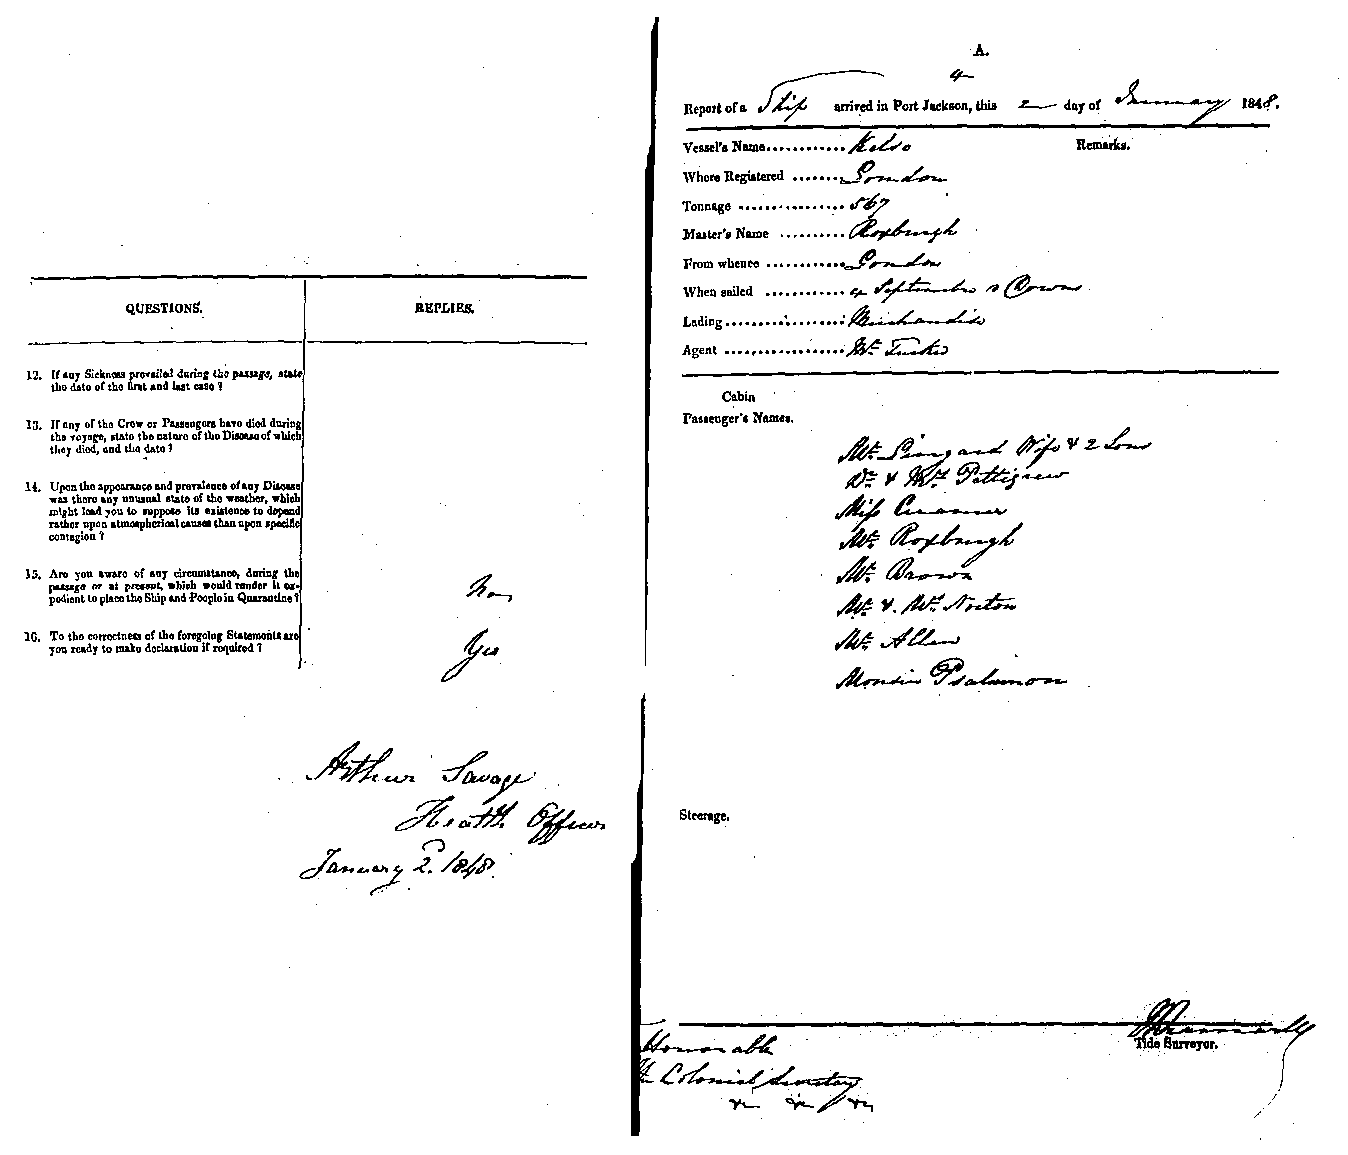 QUESTIONS.
REPLIES.
12. If any Sickness prevailed during the passage, state
the date of the first and last case?
13. If any of the Crew or Passengers have died during
the voyage, state the nature of the Disease of which
they died, and the date?
14. Upon the appearance and prevalence of any Disease
was there any unusual state of the weather, which
might lead you to suppose its existence to depend
rather upon atmospherical causes than upon specific
contagion?
15. Are you aware of any circumstance, during the
passage or at present, which would render it ex-
pedient to place the Ship and People in Quarantine?
No
16. To the correctness of the foregoing Statements are
you ready to make declaration if required?
Yes
Arthur Savage
Health Officer
January 2. 1848.
A.
4
Report of a Ship arrived in Port Jackson, this 2 day of January 1848.
Vessel's Name............ Kelso
Remarks.
Where Registered ....... London
Tonnage ................ 567
Master's Name .......... Roxburgh
From whence ............ London
When sailed ............ 4 September & Downs
Lading.................. Merchandise
Agent .................. Mr. Tucker
Cabin
Passenger's Names.
Mr. Wife & 2 Sons
Dr. & Mrs. Pettigrew
Miss Cranmer
Mr. Roxburgh
Mr. Brown
Mr. & Mrs. Norton
Mr. Allen
Monsir Psalamon
Steerage.
Tide Surveyor.
Honorable
The Colonial Secretary
&c &c &c